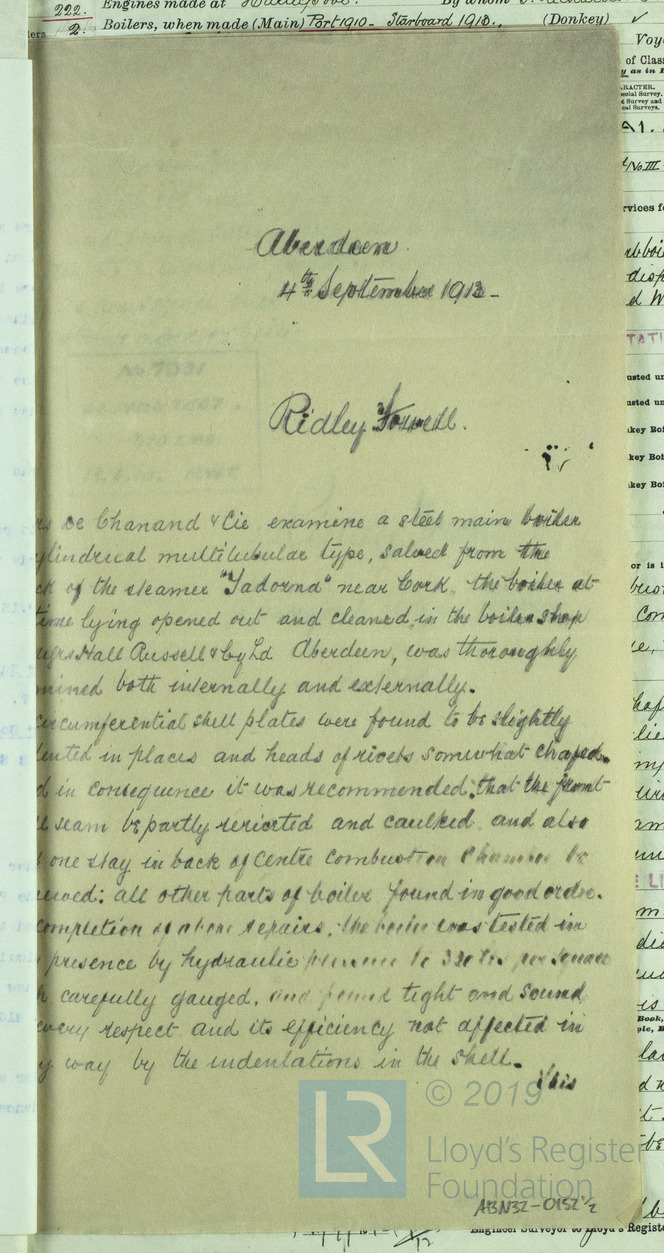 222. Engines made at
2. Boilers, when made (Main) Port 1910 - Starboard 1913., (Donkey)
Voy
of Clas
as in
ARACTER.
pecial Survey.
Survey and
al Surveys.
A1.
No III
rvices f
disp
d W
TATI
usted un
usted un
key Boi
key Boi
key Boi
Aberdeen.
4th September 1913-
Ridley
De Chanand & Cie examine a steel main boiler
lindrical multitubular type, salved from the
ck of the steamer "Tadorna" near Cork, the boiler at
time lying opened out and cleaned in the boiler shop
Hall Russell & Coy Ld Aberdeen, was thoroughly
mined both internally and externally.
circumferential shell plates were found to be slightly
dented in places and heads of rivets somwhat chafed.
d in consequence it was recommended, that the front
l seam be partly rerivted and caulked, and also
t one stay in back of Centre Combustion Chamber be
newed: all other parts of boiler found in good order.
completion of above repairs, the boiler was tested in
presence by hydraulic pressure to 320 lbs per square
h carefully gauged, and found tight and sound
every respect and its efficiency not affected in
y way by the indentations in the shell.
This
© 2019
LR
Lloyd's Register
Foundation
ABN32-0152 1/2
Engineer Surveyor to Lloyd's Registe